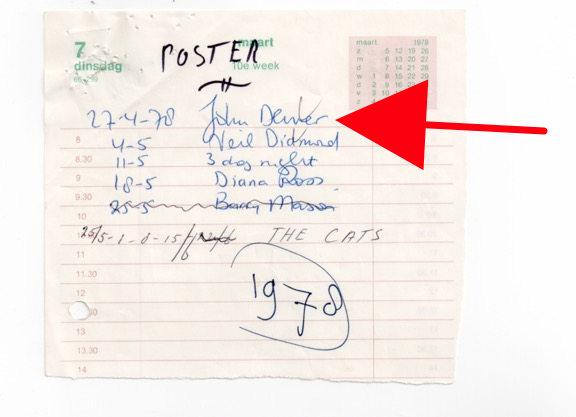 7 maart 1978
dinsdag 10e week
POSTER
maart 1978
z 5 12 19 26
m 6 13 20 27
d 7 14 21 28
w 1 8 15 22 29
d 2 9 16
v 3 10
27-4-78 John Denver
8 4-5 Neil Diamond
8.30 11-5 3 dog night
9 18-5 Diana Ross
9.30 25-5 Barry Mason
10
25/5-1-8-15/6 THE CATS
11
11.30
12
1978
13
13.30
14